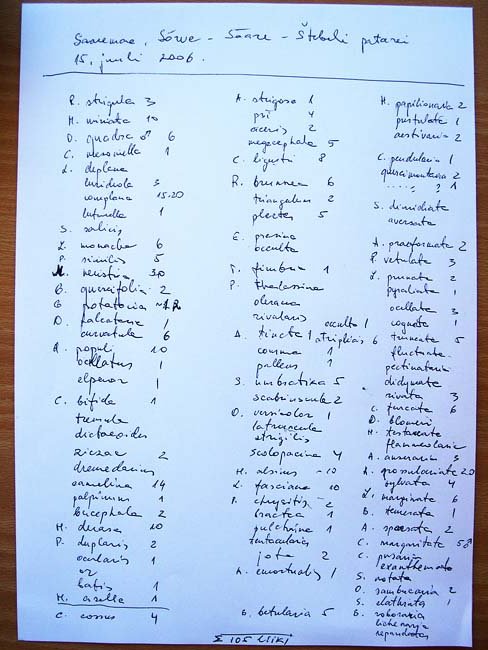 Saaremaa, Sõrve - Sääre - Štebeli patarei
15. juuli 2006.
R. strigula 3
M. miniata 10
O. quadra ♂ 6
C. mesomella 1
L. deplana
lurideola 3
complana 15-20
lutarella 1
S. salicis
L. monacha 6
P. similis 5
M. neustria 30
G. quercifolia 2
E. potatoria
D. falcataria 1
curvatula 6
L. populi 10
ocellatus 1
elpenor 1
C. bifida 1
tremula
dictaeoides
ziczac 2
dromedarius
camelina 14
palpinum 1
bucephala 2
H. duasa 10
P. duplaris 2
ocularis 1
or
batis 1
H. asella 1
C. cossus 4
A. strigosa 1
psi 4
aceris 2
megacephala 5
C. ligustri 8
R. brunnea 6
triangulum 2
plecta 5
E. prasina
occulta
T. fimbria 1
P. thalassina
oleracea
rivularis
occulta 1
A. tincta 1 atriplicis 6
comma 1
pallens 1
S. umbratica 5
scabriuscula 2
O. versicolor 1
latruncula
strigilis
scolopacina 4
H. alsines ~10
L. fasciana 10
P. chrysitis 2
bractea 1
pulchrina 1
tentacularis
jota 2
A. emortualis 1
B. betularia 5
H. papilionaria 2
pustulata 1
aestivaria 2
C. pendularia 1
quercimontaria 2
? 1
S. dimidiata
aversata
A. praeformata 2
P. vetulata 3
L. prunata 2
pyraliata 1
ocellata 3
cognata 1
truncata 5
fluctuata
pectinataria
didymata
rivata 3
C. furcata 6
D. blomeri
H. testacearia
flammeolaria
A. anseraria 3
A. grossulariata 20
sylvata 4
L. marginata 6
B. temerata 1
A. sparsata 2
C. margaritata 5♂
C. pusaria
exanthemata
S. notata
O. sambucaria 2
S. clathrata 1
B. roboraria
lichenaria
repandata
Σ 105 liiki